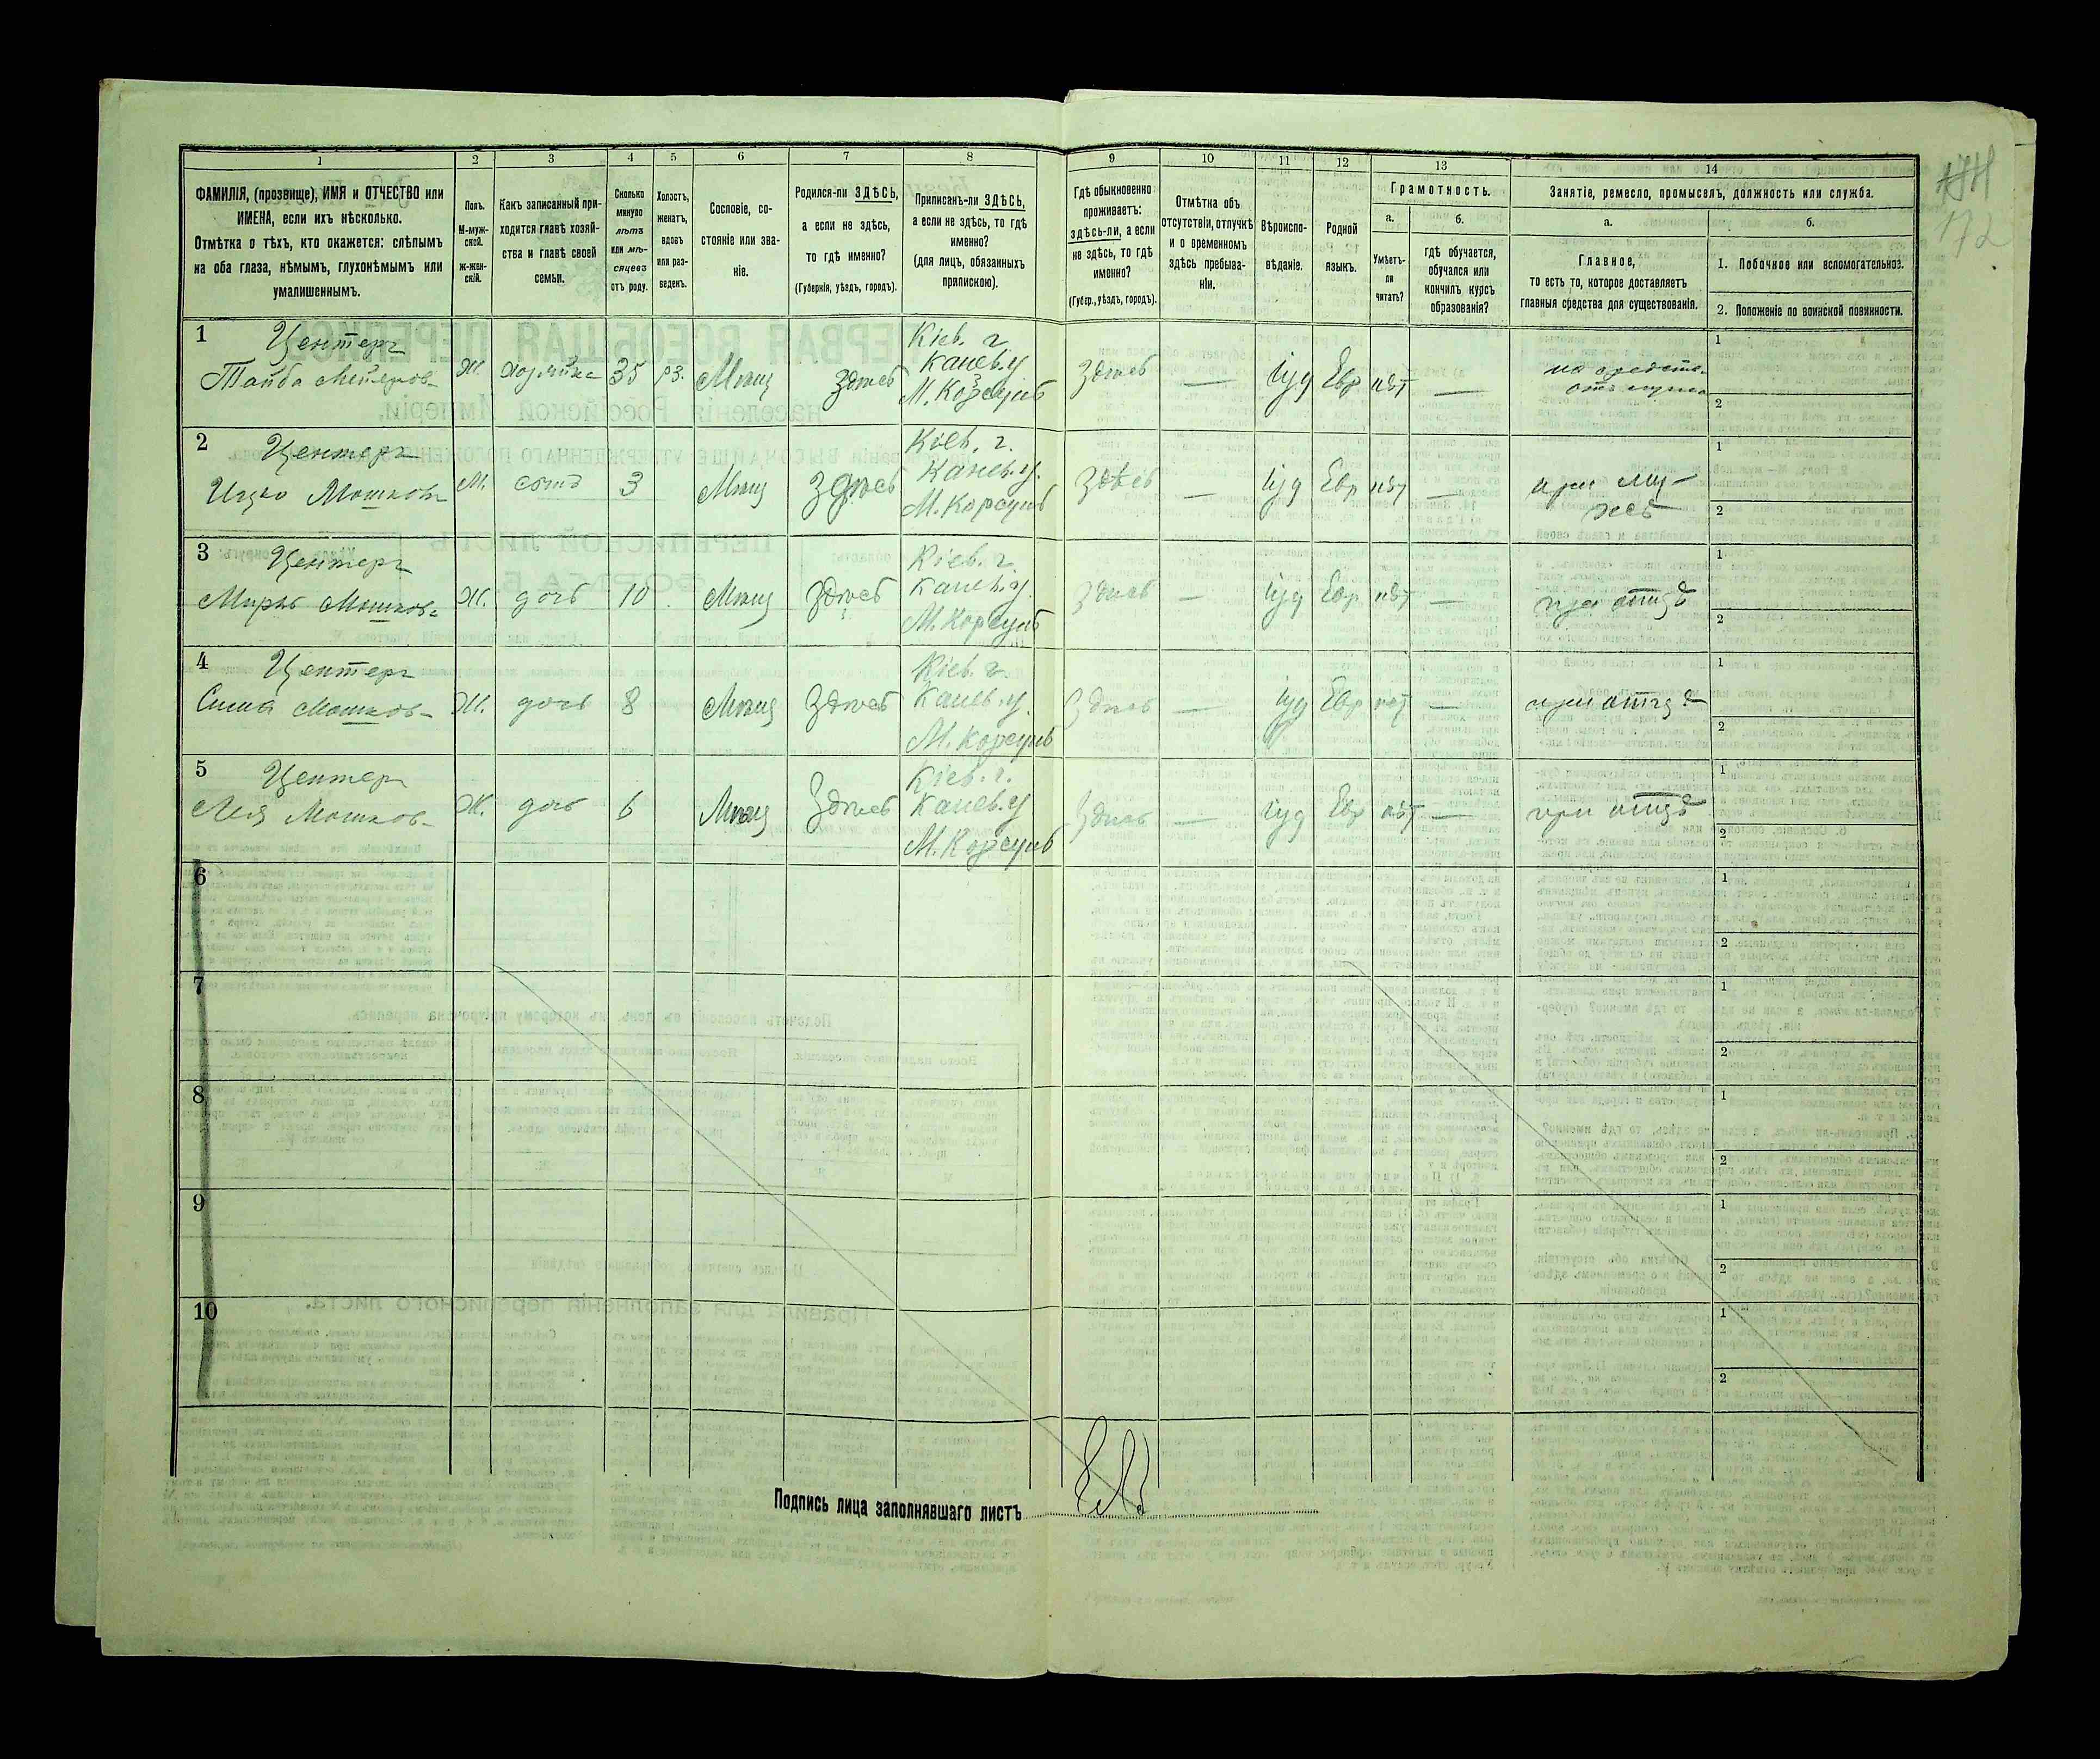 174
172
1
2
3
4
5
6
7
8
9
10
11
12
13
14
ФАМИЛІЯ, (прозвище), ИМЯ и ОТЧЕСТВО или
ИМЕНА, если ихъ нѣсколько.
Отмѣтка о тѣхъ, кто окажется: слѣпымъ
на оба глаза, нѣмымъ, глухонѣмымъ или
умалишеннымъ.
Полъ.
М-муж-
ской.
ж-жен-
скій.
Какъ записанный при-
ходится главѣ хозяй-
ства и главѣ своей
семьи.
Сколько
минуло
лѣтъ
или мѣ-
сяцевъ
отъ роду.
Холостъ,
женатъ,
вдовъ
или раз-
веденъ.
Сословіе, со-
стояніе или зва-
ніе.
Родился-ли ЗДѢСЬ,
а если не здѣсь,
то гдѣ именно?
(Губернія, уѣздъ, городъ).
Приписанъ-ли ЗДѢСЬ,
а если не здѣсь, то гдѣ
именно?
(для лицъ, обязанныхъ
припискою).
Гдѣ обыкновенно
проживаетъ:
здѣсь-ли, а если
не здѣсь, то гдѣ
именно?
(Губер., уѣздъ, городъ).
Отмѣтка объ
отсутствіи, отлучкѣ
и о временномъ
здѣсь пребыва-
ніи.
Вѣроиспо-
вѣданіе.
Родной
языкъ.
Грамотность.
а.
Умѣетъ-
ли
читать?
б.
гдѣ обучается,
обучался или
кончилъ курсъ
образованія?
Занятіе, ремесло, промыселъ, должность или служба.
а.
Главное,
то есть то, которое доставляетъ
главныя средства для существованія.
б.
1. Побочное или вспомогательное.
2. Положеніе по воинской повинности.
1
Центеръ
Тайба Мейеров-
Ж.
хозяйка
35
рз.
Мѣщ
здѣсь
Кіев. г.
Канев.у
М. Корсунь
Здѣсь
—
Іуд
Евр
нѣт
—
на средств.
отъ мужа
1
2
2
Центеръ
Ицко Мошков
М.
сынъ
3
Мѣщ
здѣсь
Кіев. г.
Канев.у.
М. Корсунь
Здѣсь
—
Іуд
Евр
нѣт
—
1
2
3
Центеръ
Мошков-
Ж.
дочь
10
Мѣщ
Здѣсь
Кіев. г.
Канев.у.
М. Корсунь
Здѣсь
—
Іуд
Евр
нѣт
—
при отцѣ
1
2
4
Центеръ
Сима Мошков-
Ж.
дочь
8
Мѣщ
Здѣсь
Кіев. г.
Канев.у.
М. Корсунь
Здѣсь
—
Іуд
Евр
нѣт
—
при отцѣ
1
2
5
Центер
Лея Мошков-
Ж.
дочь
6
Мѣщ
Здѣсь
Кіев. г.
Канев.у
М. Корсунь
Здѣсь
—
Іуд
Евр
нѣт
—
при отцѣ
1
2
6
1
2
7
1
2
8
1
2
9
1
2
10
1
2
Подпись лица заполнявшаго листъ